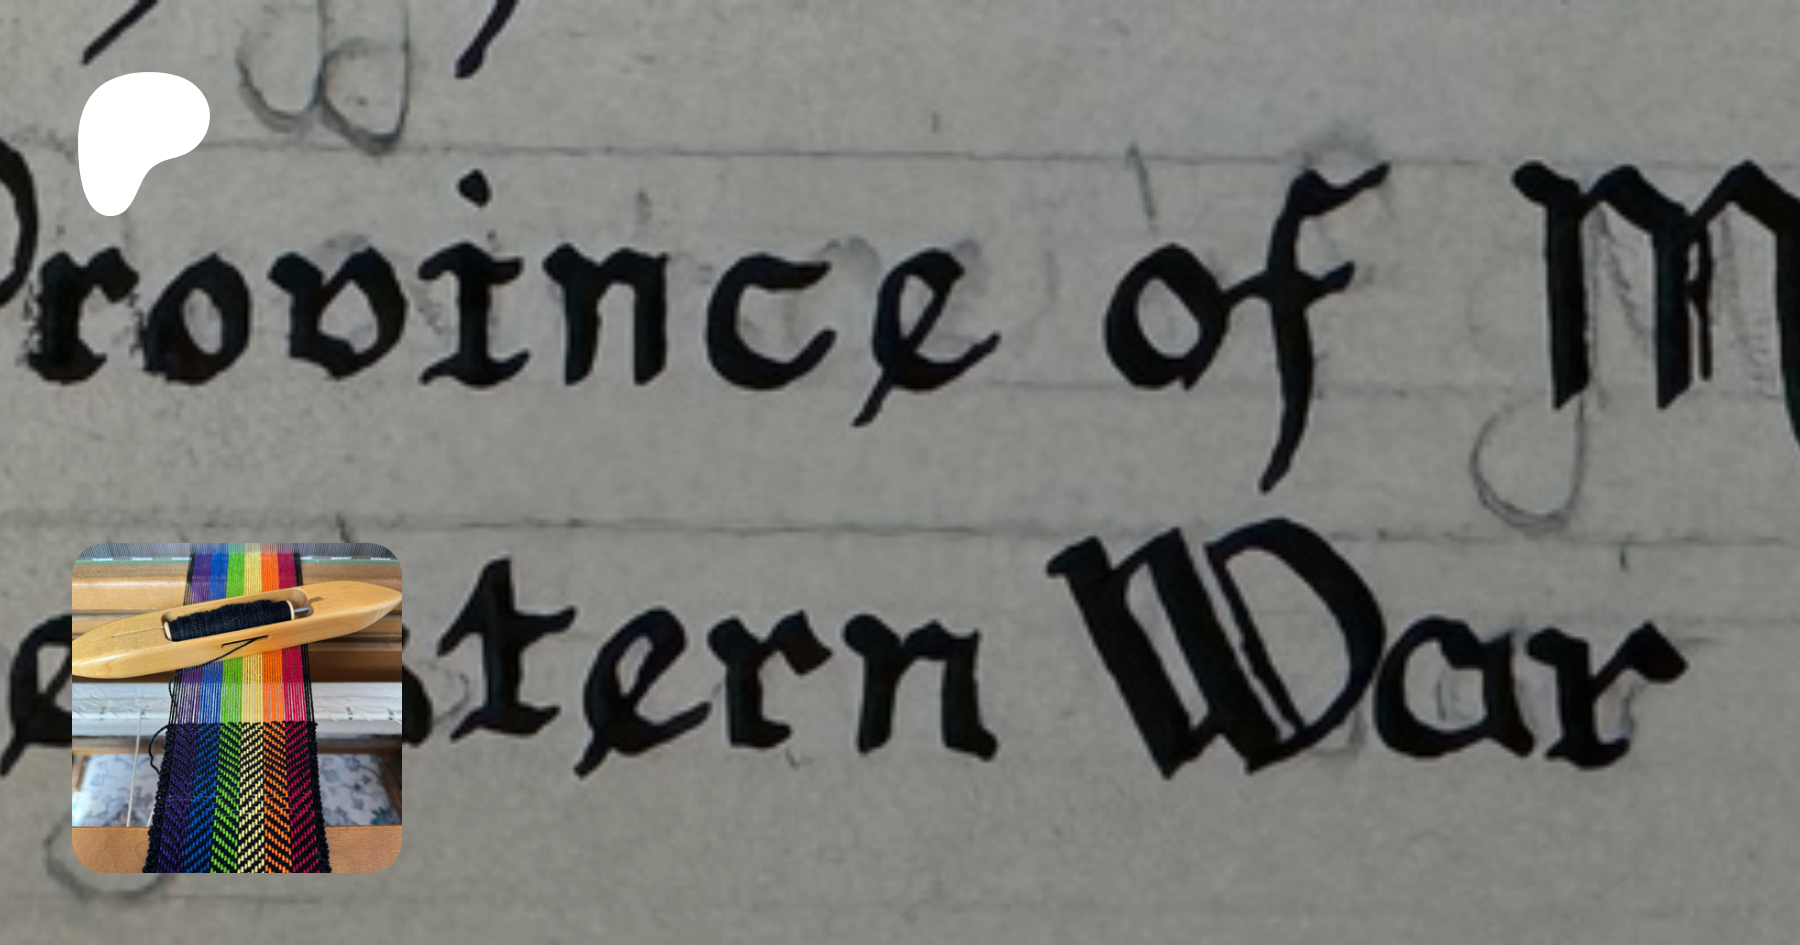 Province of M
estern War